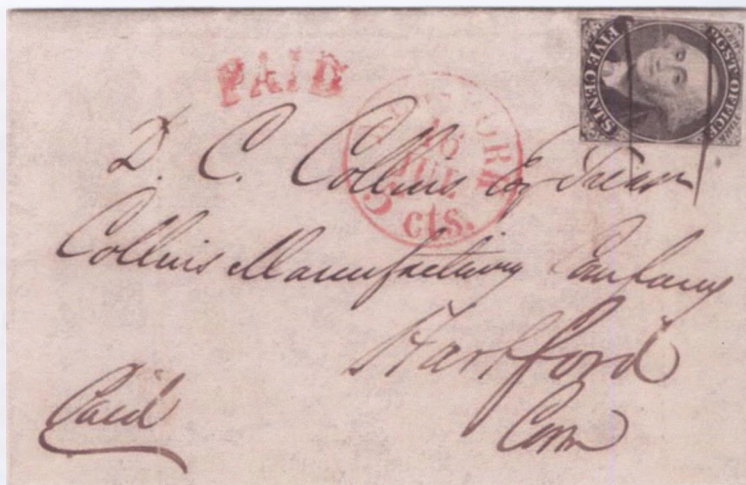 POST OFFICE
FIVE CENTS
PAID
NEW YORK
16
JUL
5 cts.
D. C. Collins Esq Treasr
Collins Manufacturing Company
Hartford
Conn
Paid